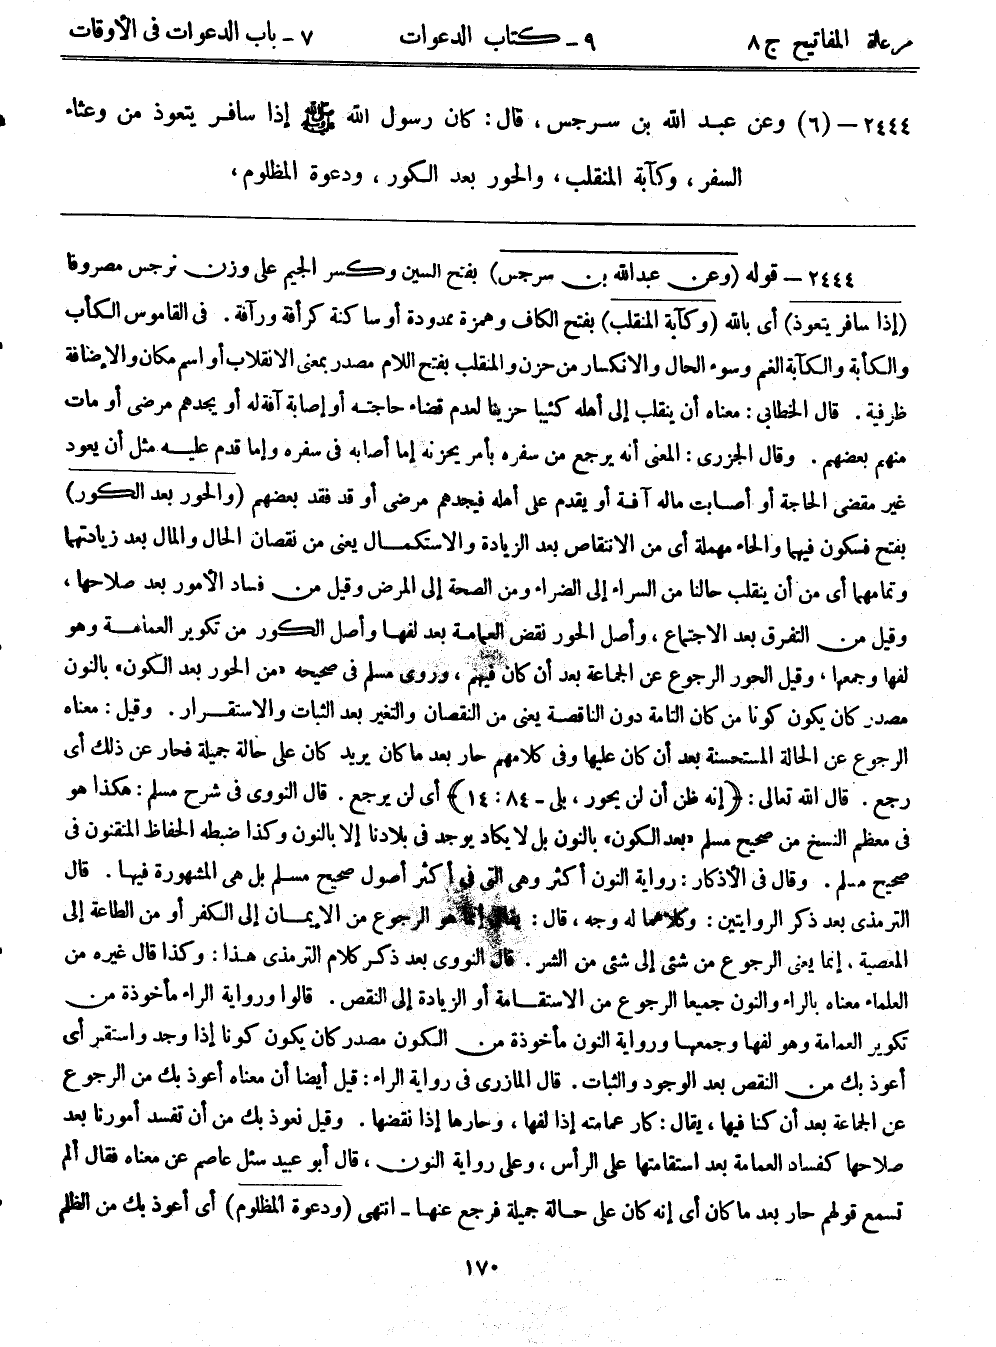 مرعاة المفاتيح ج ٨ ٩ - كتاب الدعوات ٧ - باب الدعوات فى الأوقات
٢٤٤٤ - (٦) وعن عبد الله بن سرجس ، قال : كان رسول الله ﷺ إذا سافر يتعوذ من وعثاء
السفر ، وكآبة المنقلب ، والحور بعد الكور ، ودعوة المظلوم ،
٢٤٤٤ - قوله (وعن عبدالله بن سرجس) بفتح السين وكسر الجيم على وزن نرجس مصروفا
(إذا سافر يتعوذ) أى بالله (وكآبة المنقلب) بفتح الكاف وهمزة ممدودة أو ساكنة كرأفة ورآفة . فى القاموس الكأب
والكأبة والكآبة الغم وسوء الحال والانكسار من حزن والمنقلب بفتح اللام مصدر بمعنى الانقلاب أو اسم مكان والإضافة
ظرفية . قال الخطابى : معناه أن ينقلب إلى أهله كئيبا حزينا لعدم قضاء حاجته أو إصابة آفة له أو يجدهم مرضى أو مات
منهم بعضهم . وقال الجزرى : المعنى أنه يرجع من سفره بأمر يحزنه إما أصابه فى سفره وإما قدم عليه مثل أن يعود
غير مقضى الحاجة أو أصابت ماله آفة أو يقدم على أهله فيجدهم مرضى أو قد فقد بعضهم (والحور بعد الكور)
بفتح فسكون فيهما والحاء مهملة أى من الانتقاص بعد الزيادة والاستكمال يعنى من نقصان الحال والمال بعد زيادتهما
وتمامهما أى من أن ينقلب حالنا من السراء إلى الضراء ومن الصحة إلى المرض وقيل من فساد الأمور بعد صلاحها ،
وقيل من التفرق بعد الاجتماع ، وأصل الحور نقض العمامة بعد لفها وأصل الكور من تكوير العمامة وهو
لفها وجمعها ، وقيل الحور الرجوع عن الجماعة بعد أن كان فيهم ، وروى مسلم فى صحيحه «من الحور بعد الكون» بالنون
مصدر كان يكون كونا من كان التامة دون الناقصة يعنى من النقصان والتغير بعد الثبات والاستقرار . وقيل : معناه
الرجوع عن الحالة المستحسنة بعد أن كان عليها وفى كلامهم حار بعد ما كان يريد كان على حالة جميلة فحار عن ذلك أى
رجع . قال الله تعالى : ﴿إنه ظن أن لن يحور ، بلى - ٨٤ : ١٤﴾ أى لن يرجع . قال النووى فى شرح مسلم : هكذا هو
فى معظم النسخ من صحيح مسلم «بعد الكون» بالنون بل لا يكاد يوجد فى بلادنا إلا بالنون وكذا ضبطه الحفاظ المتقنون فى
صحيح مسلم . وقال فى الأذكار : رواية النون أكثر وهى التى فى أكثر أصول صحيح مسلم بل هى المشهورة فيها . قال
الترمذى بعد ذكر الروايتين : وكلاهما له وجه ، قال : يقال إنما هو الرجوع من الايمان إلى الكفر أو من الطاعة إلى
المعصية ، إنما يعنى الرجوع من شئى إلى شئى من الشر . قال النووى بعد ذكر كلام الترمذى هذا : وكذا قال غيره من
العلماء معناه بالراء والنون جميعا الرجوع من الاستقامة أو الزيادة إلى النقص . قالوا ورواية الراء مأخوذة من
تكوير العمامة وهو لفها وجمعها ورواية النون مأخوذة من الكون مصدر كان يكون كونا إذا وجد واستقر أى
أعوذ بك من النقص بعد الوجود والثبات . قال المازرى فى رواية الراء : قيل أيضا أن معناه أعوذ بك من الرجوع
عن الجماعة بعد أن كنا فيها ، يقال : كار عمامته إذا لفها ، وحارها إذا نقضها . وقيل نعوذ بك من أن تفسد أمورنا بعد
صلاحها كفساد العمامة بعد استقامتها على الرأس ، وعلى رواية النون ، قال أبو عبيد سئل عاصم عن معناه فقال ألم
تسمع قولهم حار بعد ما كان أى إنه كان على حالة جميلة فرجع عنها - انتهى (ودعوة المظلوم) أى أعوذ بك من الظلم
١٧٠